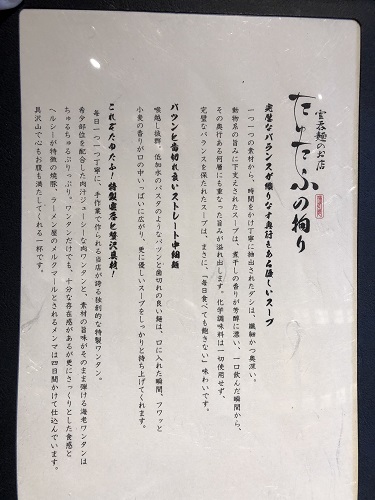 雲呑麺のお店
たゆたふの拘り
完璧なバランスが織りなす奥行きある優しいスープ
一つ一つの素材から、時間をかけ丁寧に抽出されたダシは、繊細かつ奥深い。
動物系の旨みに下支えされたスープは、煮干しの香りが芳醇に漂い、一口飲んだ瞬間から、
その奥行ある何層にも重なった旨みが溢れ出します。化学調味料は一切使用せず、
完璧なバランスを保たれたスープは、まさに、「毎日食べても飽きない」味わいです。
パツンと歯切れ良いストレート中細麺
喉越し抜群。低加水のパスタのようなパツンと歯切れの良い麺は、口に入れた瞬間、フワッと
小麦の香りが口の中いっぱいに広がり、更に優しいスープをしっかりと持ち上げてくれます。
これぞたゆたふ！特製雲呑と贅沢具材！
毎日一つ一つ丁寧に、手作業で作られる当店が誇る独創的な特製ワンタン。
希少部位を配合した肉汁ジューシーな肉ワンタンと、素材の旨味がそのまま弾ける海老ワンタンは
ちゅるちゅるぷりっぷり。ワンタンだけでも、十分な存在感があるが更にさっくりとした食感と
ヘルシーが特徴の焼豚、ラーメン屋のメルクマールとされるメンマは四日間かけて仕込んでいます。
具沢山で心もお腹も満たしてくれる一杯です。